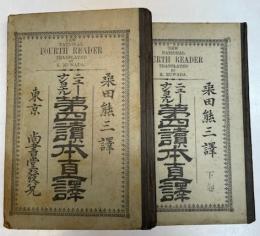 NATIONAL
FOURTH READER
TRANSLATED
BY
K. KUWADA.
桑田熊三譯
ニューナショナル
第四讀本直譯
東京 尚書堂發兌
NEW
NATIONAL
FOURTH READER
TRANSLATED
BY
K. KUWADA.
桑田熊三譯
下卷
ニューナショナル
第四讀本直譯